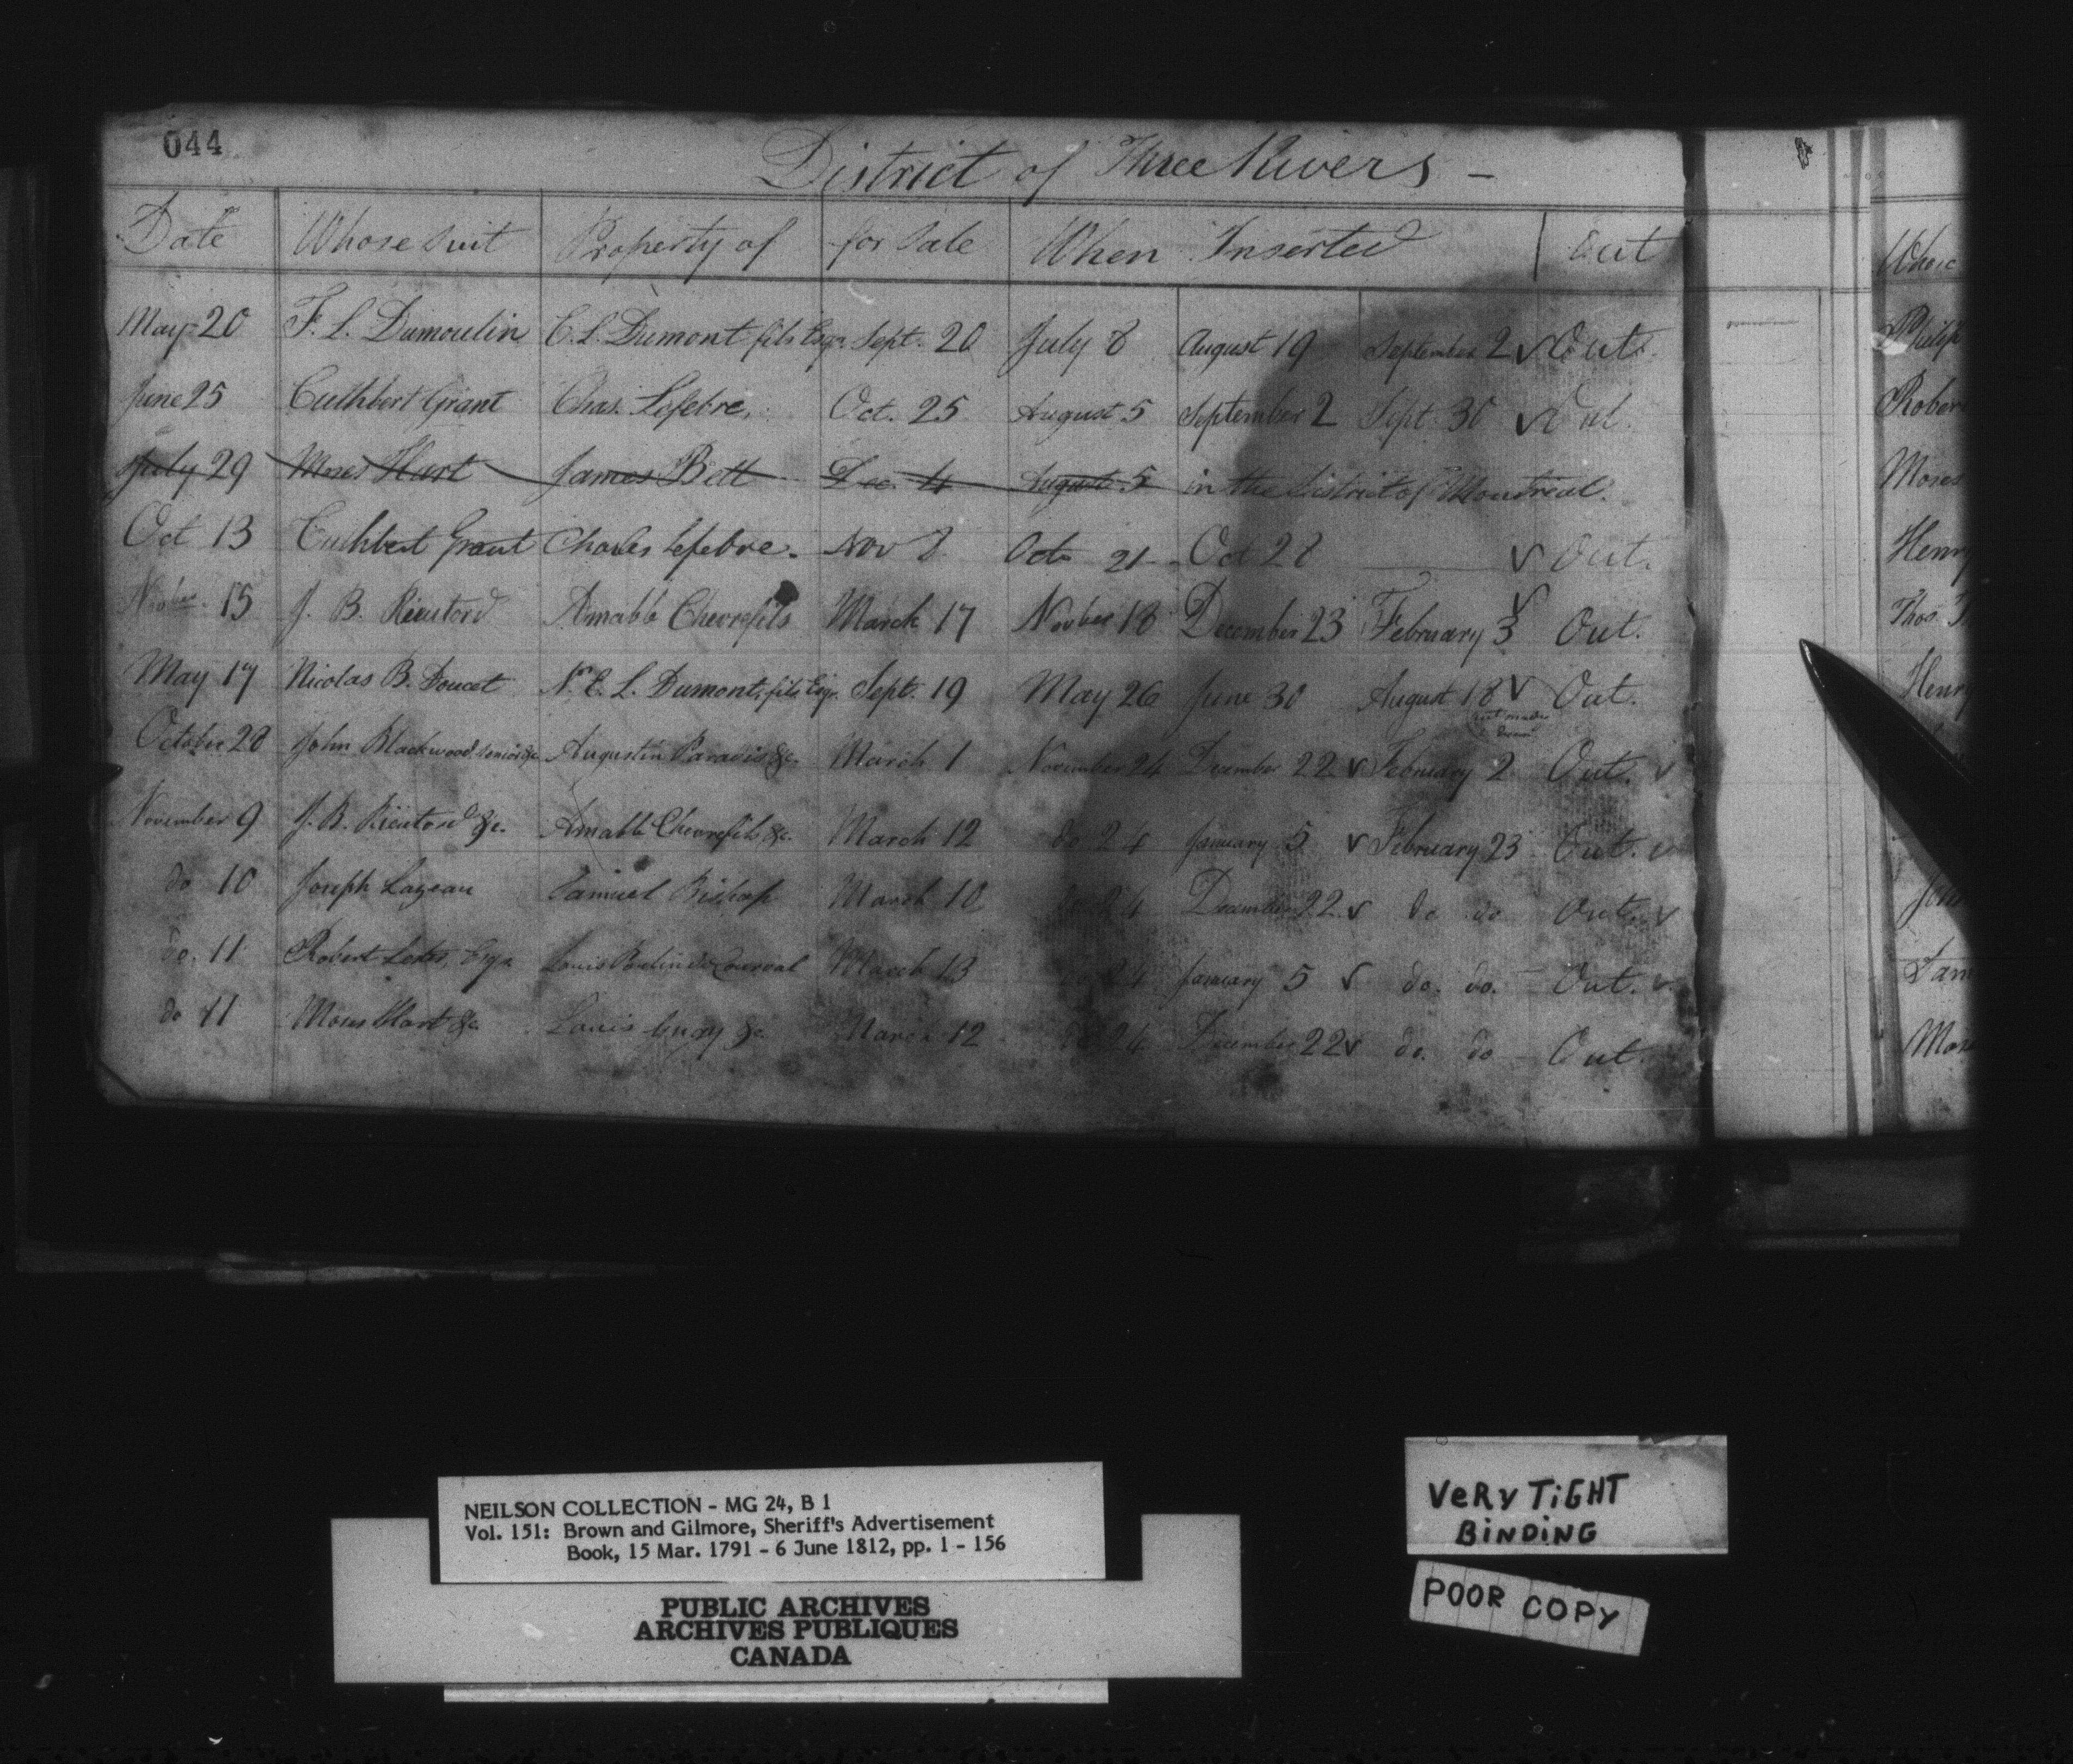 044
District of Three Rivers -
Date Whose suit Property of for Sale When Inserted Out
May 20 F. L. Dumoulin C. L. Dumont fils Esqr. Sept. 20 July 8 August 19 September 2 ✓ Out.
June 25 Cuthbert Grant Chas. Lefebre, Oct. 25 August 5 September 2 Sept. 30 ✓ Out.
July 29 Moses Hart James Bett Dec. 4 August 5 in the District of Montreal.
Oct 13 Cuthbert Grant Charles Lefebre. Nov 8 Octr 21 Oct 28 ✓ Out.
Novber. 15 J. B. Rieutord Amable Chevrefils March 17 Novber 18 December 23 February 3 ✓ Out.
May 17 Nicolas B. Doucet Nr. E. L. Dumont, fils, Esqr. Sept. 19 May 26 June 30 August 18 ✓ Out.
October 28 John Blackwood senior &c Augustin Paradis &c. March 1 November 24 December 22 ✓ February 2 Out. ✓
November 9 J. B. Rieutord &c. Amable Chevrefils &c. March 12 do 24 January 5 ✓ February 23 Out. ✓
do 10 Joseph Lozeau Samuel Bishop March 10 do 24 December 22 ✓ do do Out. ✓
do. 11 Robert Lester, Esqr Louis Poulin de Courval March 13 do 24 January 5 ✓ do. do. Out. ✓
do 11 Moses Hart &c. Louis Guay &c. March 12 do 24 December 22 ✓ do. do Out.
Whose
Philip
Rober
Moses
Henry
Thos
Henry
John
Sam
Mose
NEILSON COLLECTION - MG 24, B 1
Vol. 151: Brown and Gilmore, Sheriff's Advertisement
Book, 15 Mar. 1791 - 6 June 1812, pp. 1 - 156
PUBLIC ARCHIVES
ARCHIVES PUBLIQUES
CANADA
VERY TIGHT
BINDING
POOR COPY